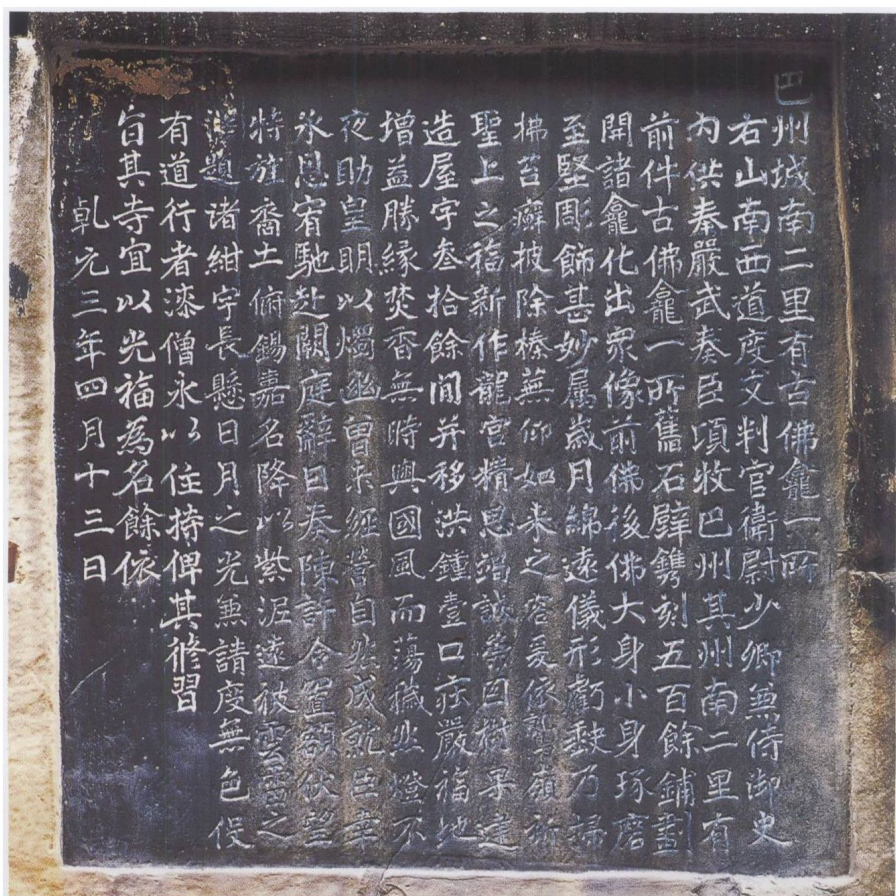 巴州城南二里有古佛龕一所
右山南西道度支判官衛尉少卿兼侍御史
内供奉嚴武奏臣頃牧巴州其州南二里有
前件古佛龕一所舊石壁鐫刻五百餘鋪劃
開諸龕化出衆像前佛後佛大身小身琢磨
至堅彫飾甚妙屬歲月綿遠儀形虧缺乃掃
拂苔癬披除榛蕪仰如来之容爰依鷲嶺祈
聖上之福新作龍宮精思竭誠崇因樹果建
造屋宇叁拾餘間并移洪鍾壹口莊嚴福地
增益勝緣焚香無時與國風而蕩穢燃燈不
夜助皇明以燭幽曾未經營自然成就臣幸
承恩宥馳赴闕庭辭日奏陳許令置額伏望
特旌裔土俯錫嘉名降以紫泥遠被雲雷之
題諸紺宇長懸日月之光兼請度無色役
有道行者漆僧永以住持俾其修習
旨其寺宜以光福為名餘依
乹元三年四月十三日